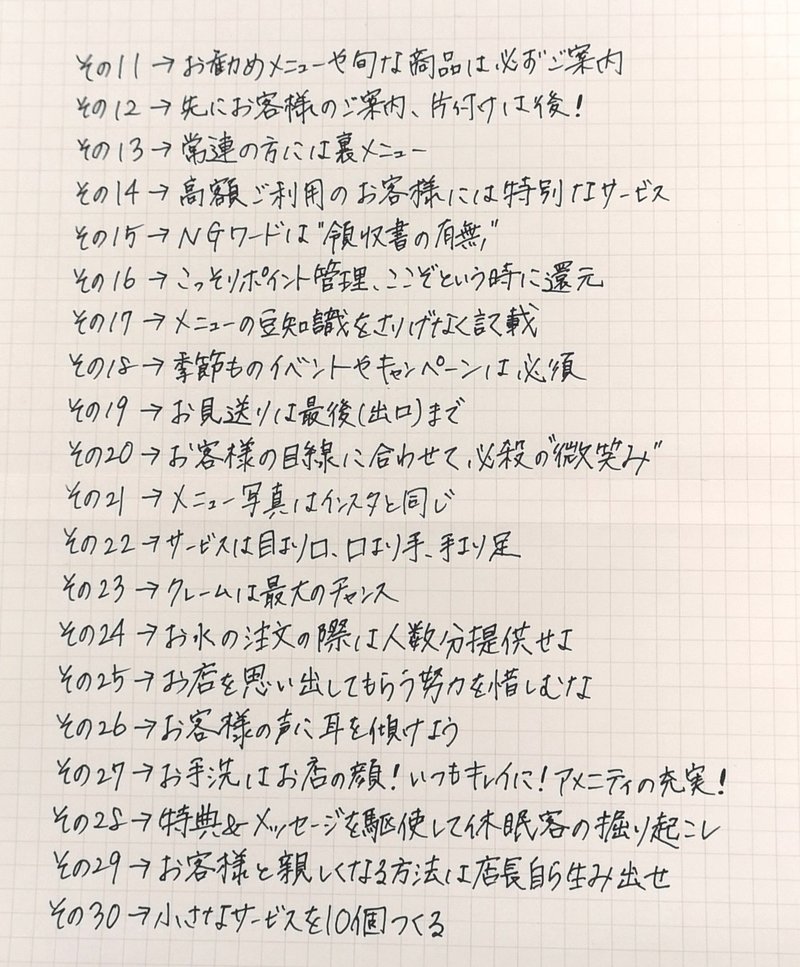 その11→お勧めメニューや旬な商品は必ずご案内
その12→先にお客様のご案内、片付けは後!
その13→常連の方には裏メニュー
その14→高額ご利用のお客様には特別なサービス
その15→NGワードは"領収書の有無"
その16→こっそりポイント管理、ここぞという時に還元
その17→メニューの豆知識をさりげなく記載
その18→季節ものイベントやキャンペーンは必須
その19→お見送りは最後(出口)まで
その20→お客様の目線に合わせて、必殺の"微笑み"
その21→メニュー写真はインスタと同じ
その22→サービスは目より口、口より手、手より足
その23→クレームは最大のチャンス
その24→お水の注文の際は人数分提供せよ
その25→お店を思い出してもらう努力を惜しむな
その26→お客様の声に耳を傾けよう
その27→お手洗はお店の顔!いつもキレイに!アメニティの充実!
その28→特典&メッセージを駆使して休眠客の掘り起こし
その29→お客様と親しくなる方法は店長自ら生み出せ
その30→小さなサービスを10個つくる